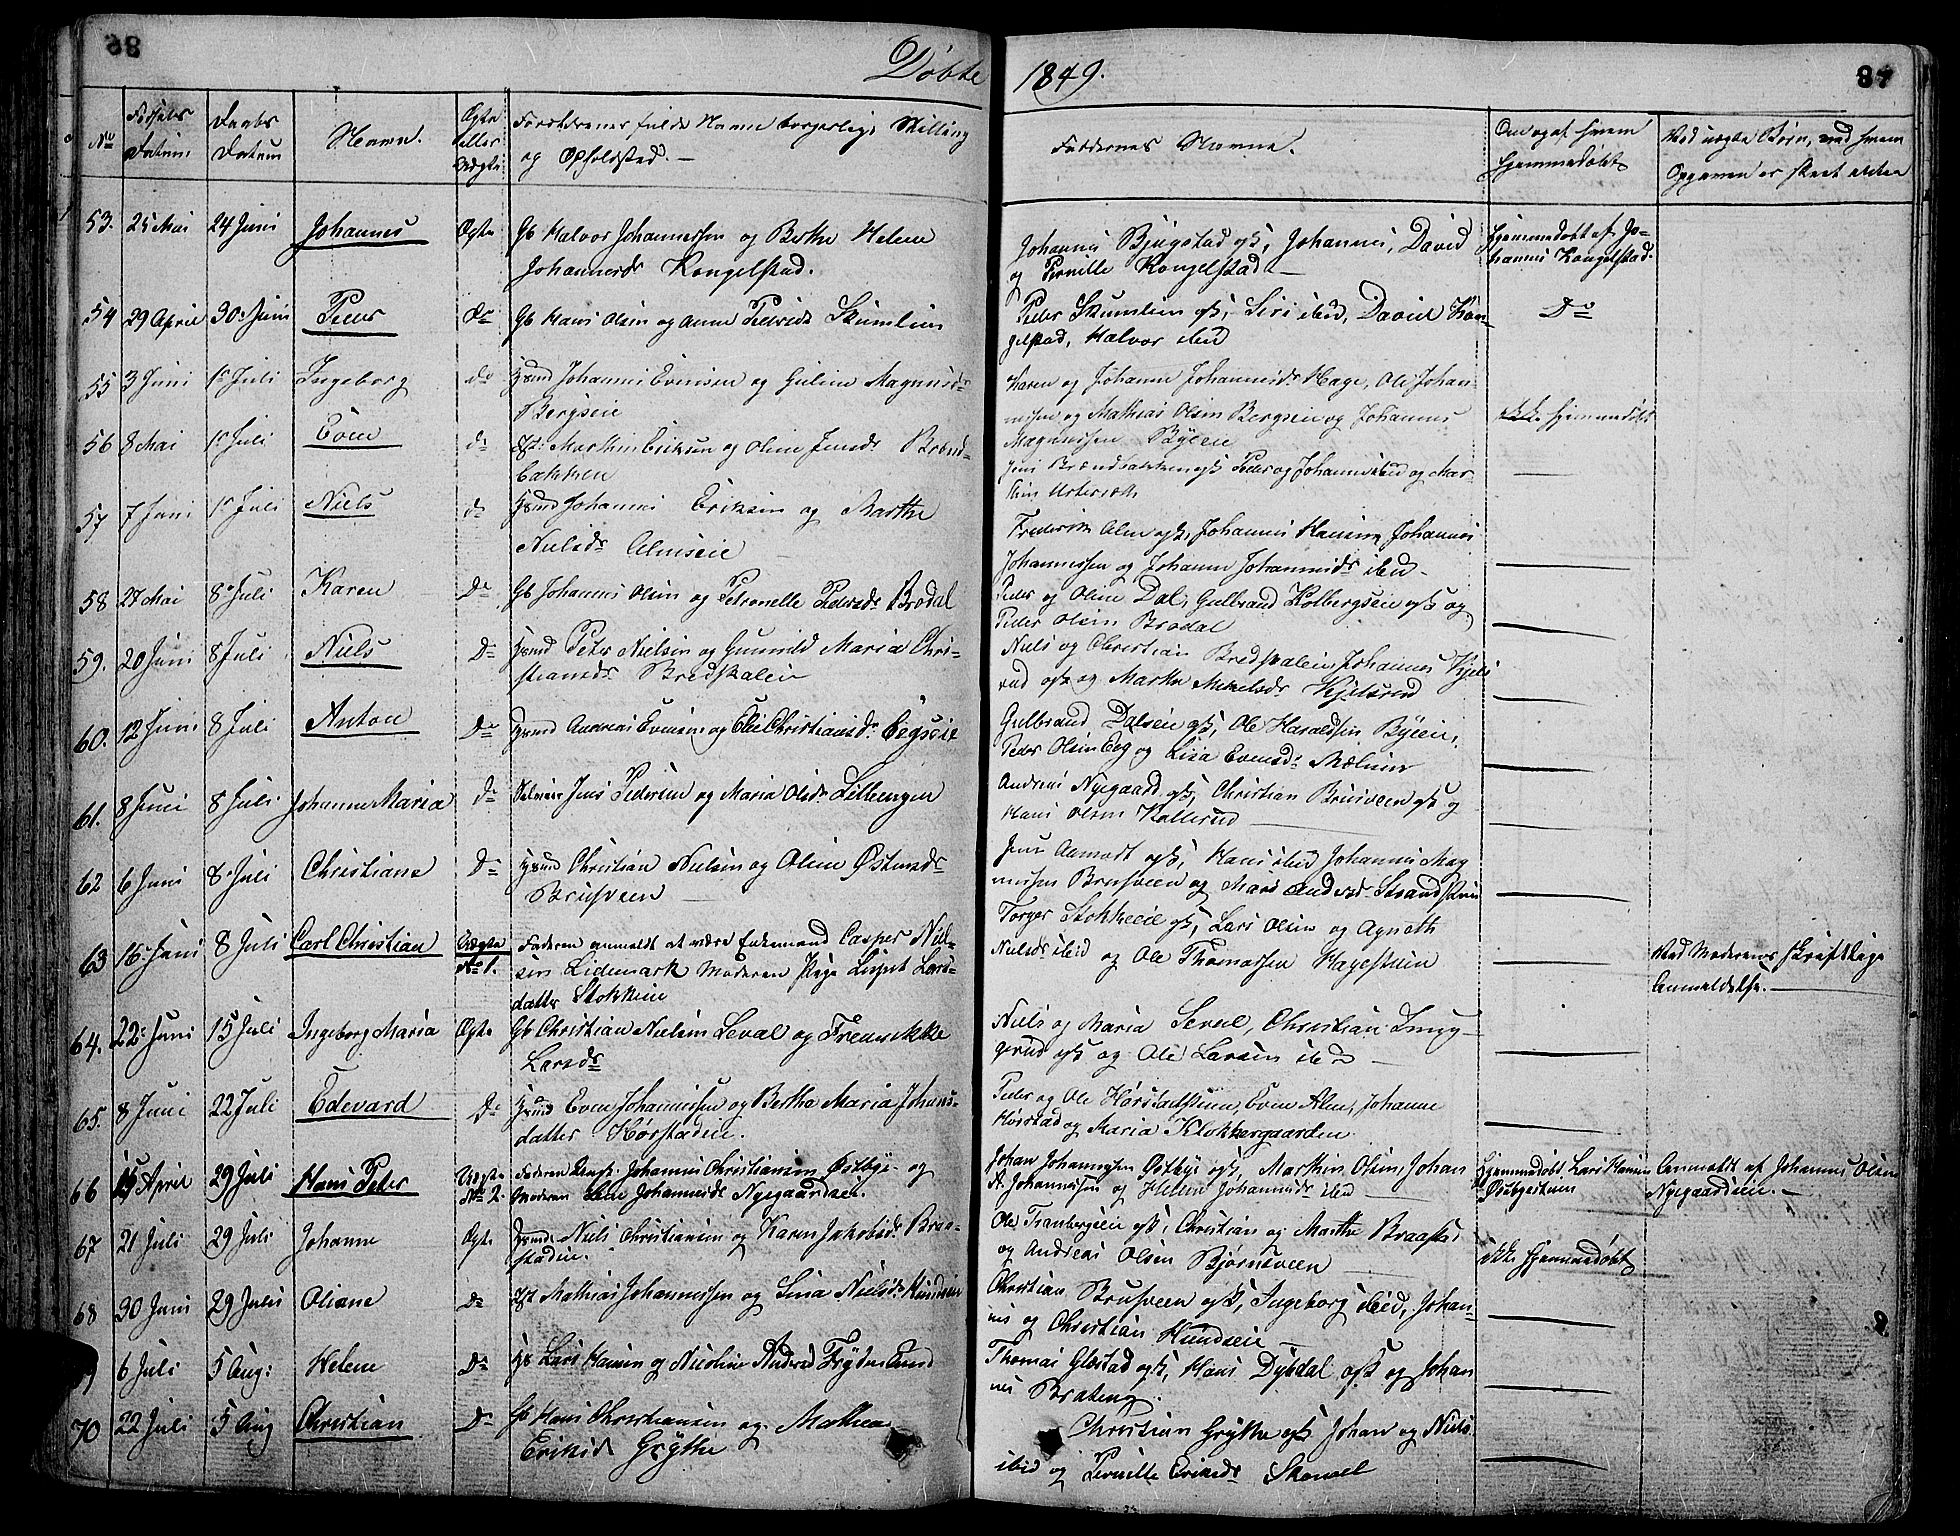 86
Døbte
1849.
87
No
Fødsels Datum
Daabs Datum
Navn.
Ægte eller Uægte
Forældrenes fulde Navne borgerlige Stilling
og Opholdsted. —
Faddernes Navne.
Om og af hvem
hjemmedøbt
Ved uægte Børn, ved hvem
Opgaven er skeet
53. 25 Mai 24 Juni Johannes Ægte Gb Halvor Johannessen og Berthe Helene
Johannesd Kongelstad.
Johannes Bjugstad gb, Johannes, David
og Pernille Kongelstad —
Hjemmedøbt af Jo-
hannes Kongelstad.
54 29 April 30 Juni Peder do Gb Hans Olsen og Anne Pedersd Skumlien
Peder Skumlien gb, Siri ibid, David Kon-
gelstad, Halvor ibid
Do
55 3 Juni 1 Juli Ingeborg do Hmd Johannes Evensen og Guline Magnusd
Bergseie
Karen og Johanne Johannesd Hage, Ole Johan-
nesen og Mathias Olsen Bergseie og Johannes
Magnussen Byeie
ikke hjemmedøbt
56 8 Mai 1 Juli Even do Martin Eriksen og Oline Jensd Brænd-
bakken
Jens Brændbakken gb Peder og Johannes ibid og Mar-
thin
57 7 Juni 1 Juli Niels do Hmd Johannes Eriksen og Marthe
Nielsd Almseie
Frederik Alm gb, Johannes Hansen, Johannes
Johannessen og Johanne Johannesd ibid —
58 27 Mai 8 Juli Karen Do Gb Johannes Olsen og Petronelle Pedersd Brodal
Peder og Oline Dal, Gulbrand Kolbergseie gb og
Peder Olsen Brodal
59. 20 Juni 8 Juli Niels Do Hmd Peter Nielsen og Gunnild Maria Chri-
stiansd Bredskaleie
Niels og Christian Bredskaleie, Johannes Kjels
rud gb og Marthe Mikelsd Kjelsrud
60. 12 Juni 8 Juli Anton Do Hmd Andreas Evensen og Eli Christiansd Eegseie
Gulbrand Dalseie gb, Ole Haraldsen Byeie,
Peder Olsen Eeg og Lisa Evensd Mælum
61. 8 Juni 8 Juli Johanne Maria Do Jens Pedersen og Maria Olsd Lilleengen
Andreas Nyegaard gb, Christian Brusveen gb og
Hans Olsen Kallerud
62 6 Juni 8 Juli Christiane Do Hmd Christian Nielsen og Oline Østensd
Brusveen
Jens Aamodt gb, Hans ibid Johannes Mag
nussen Brusveen og Mari Andersd Strandstuen
63 16 Juni 8 Juli Carl Christian Uægte
No 1.
Faderen anmeldt at være Enkemand Casper Niel-
sen Lidemark Moderen Pige Lispet Lars-
datter Stokkeie
Torger Stokkeeie gb, Lars Olsen og Agneth
Nielsd ibid og Ole Thomassen Hagestuen
Ved Moderens skriftlige
Anmeldelse.
64. 22 Juni 15 Juli Ingeborg Maria Ægte Gb Christian Nielsen Seval og Frederikke
Larsd
Niels og Maria Seval, Christian
gb og Ole Larsen ibid —
65. 8 Juni 22 Juli Edevard Do Hmd Even Johannessen og Bertha Maria Johans-
datter Hørstadeie.
Peder og Ole Hørstadstuen, Even Alm, Johanne
Hørstad og Maria Klokkergaarden
66 15 April 29 Juli Hans Peter Uægte
No 2.
Faderen Ungk. Johannes Christiansen Østbye og
Moderen Lene Johannesd Nyegaardseie.
Johan Johannessen Østbye gb, Marthin Olsen, Johan
A. Johannessen og Helene Johannesd ibid
Hjemmedøbt Lars Hansen
Østbyestuen
Anmeldt af Johannes Olsen
Nyegaardseie. —
67 21 Juli 29 Juli Johanne Ægte Hmd: Niels Christiansen og Karen Jakobsd Braa-
stadeie.
Ole Tranbergseie gb, Christian og Marthe Braastad
og Andreas Olsen Bjørnsveen
ikke hjemmedøbt
68 30 Juni 29 Juli Oliane do Mathias Johannessen og Lina Nielsd Hundseie
Christian Brusveen gb, Ingeborg ibid, Johan-
nes og Christian Hundseie —
9 6 Juli 5 Aug: Helene Do Lars Hansen og Nicoline Andersd
Thomas Glæstad gb, Hans Dybdal gb og Johan
nes Brateng.
70 22 Juli 5 Aug Christian Do Gb Hans Christiansen og Mathea
Eriksd Grythe
Christian Grythe gb Johan og Niels
ibid og Pernille Eriksd Skonvel